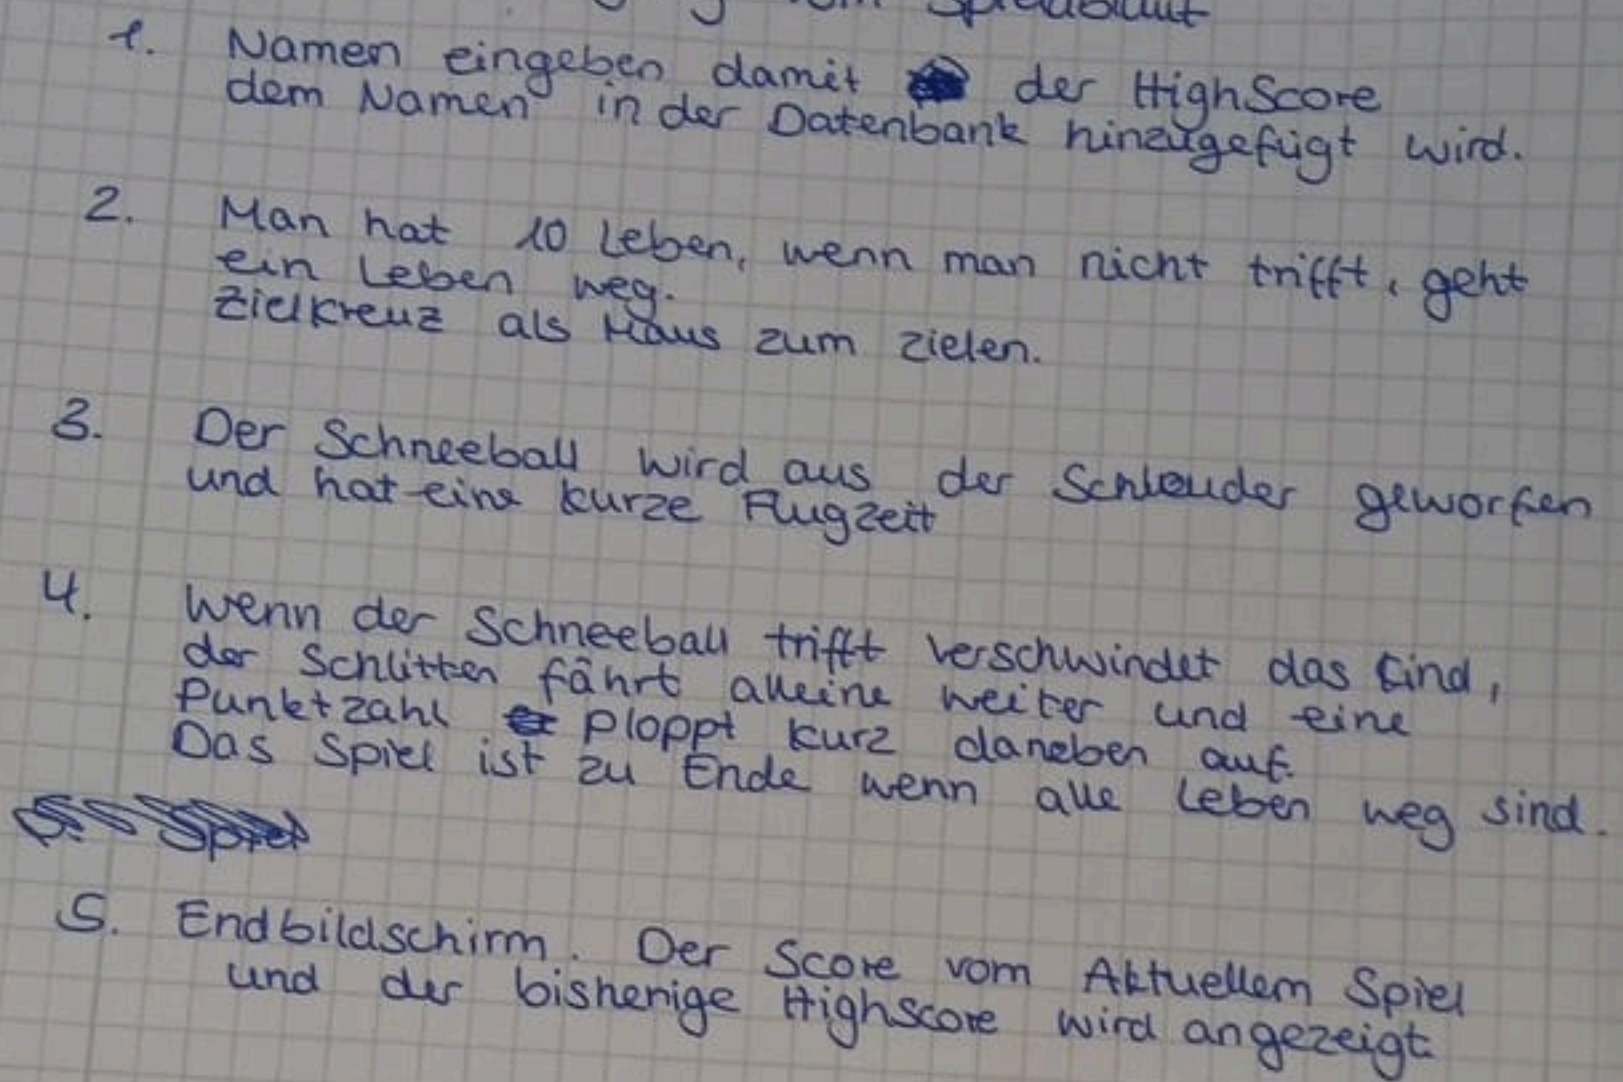 Spielablauf
1. Namen eingeben damit der HighScore
dem Namen in der Datenbank hinzugefügt wird.
2. Man hat 10 Leben, wenn man nicht trifft, geht
ein Leben weg.
Zielkreuz als Maus zum zielen.
3. Der Schneeball wird aus der Schleuder geworfen
und hat eine kurze Flugzeit
4. Wenn der Schneeball trifft verschwindet das Kind,
der Schlitten fährt alleine weiter und eine
Punktzahl ploppt kurz daneben auf.
Das Spiel ist zu Ende wenn alle Leben weg sind.
5. Endbildschirm. Der Score vom Aktuellem Spiel
und der bisherige Highscore wird angezeigt.